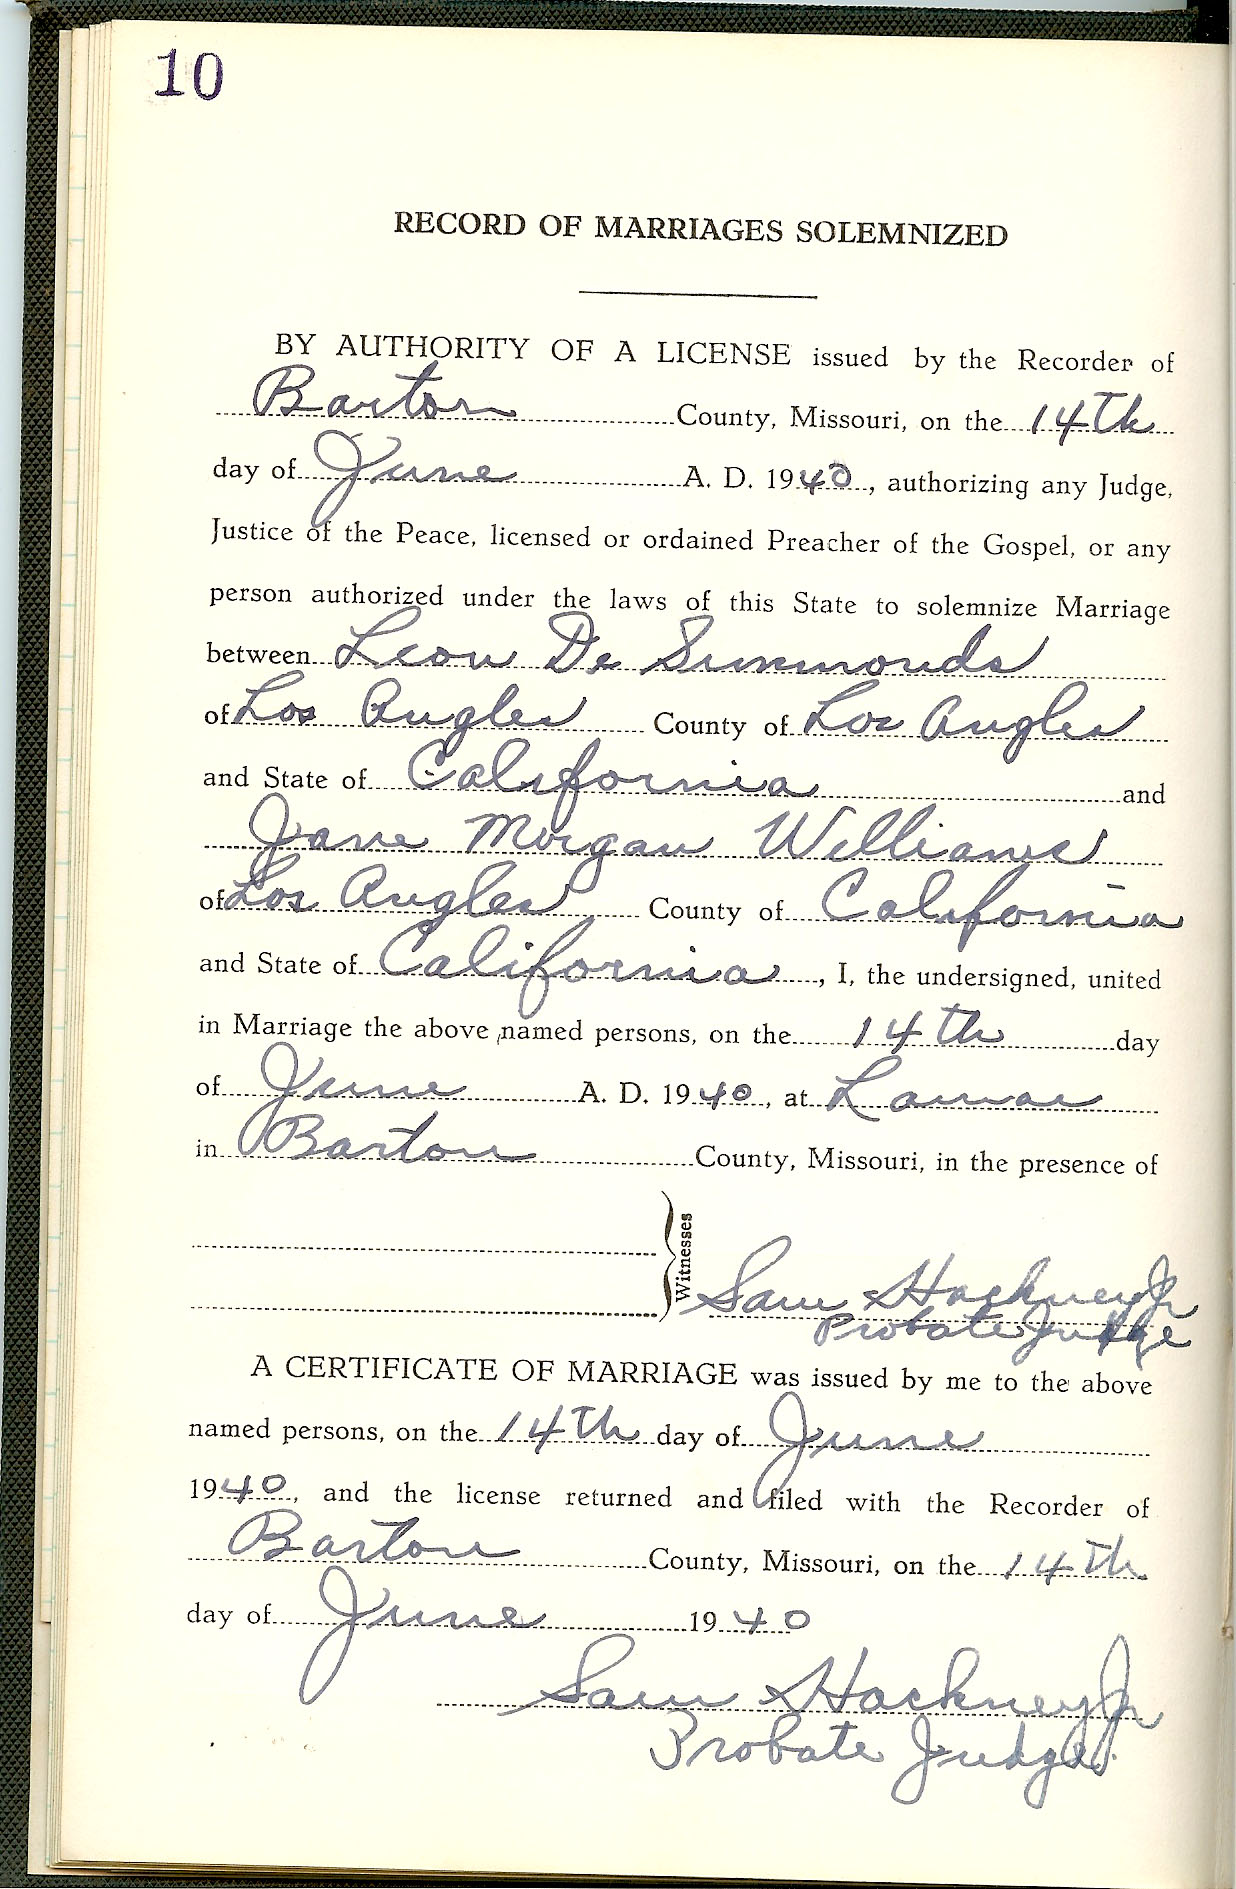 10
RECORD OF MARRIAGES SOLEMNIZED
BY AUTHORITY OF A LICENSE issued by the Recorder of
Barton County, Missouri, on the 14th
day of June A. D. 1940, authorizing any Judge,
Justice of the Peace, licensed or ordained Preacher of the Gospel, or any
person authorized under the laws of this State to solemnize Marriage
between Leon De Simmonds
of Los Angles County of Los Angles
and State of California and
Jane Morgan Williams
of Los Angles County of California
and State of California, I, the undersigned, united
in Marriage the above named persons, on the 14th day
of June A. D. 1940, at Lamar
in Barton County, Missouri, in the presence of
Witnesses
Sam Hackney Jr
Probate Judge
A CERTIFICATE OF MARRIAGE was issued by me to the above
named persons, on the 14th day of June
1940, and the license returned and filed with the Recorder of
Barton County, Missouri, on the 14th
day of June 1940
Sam Hackney Jr
Probate Judge